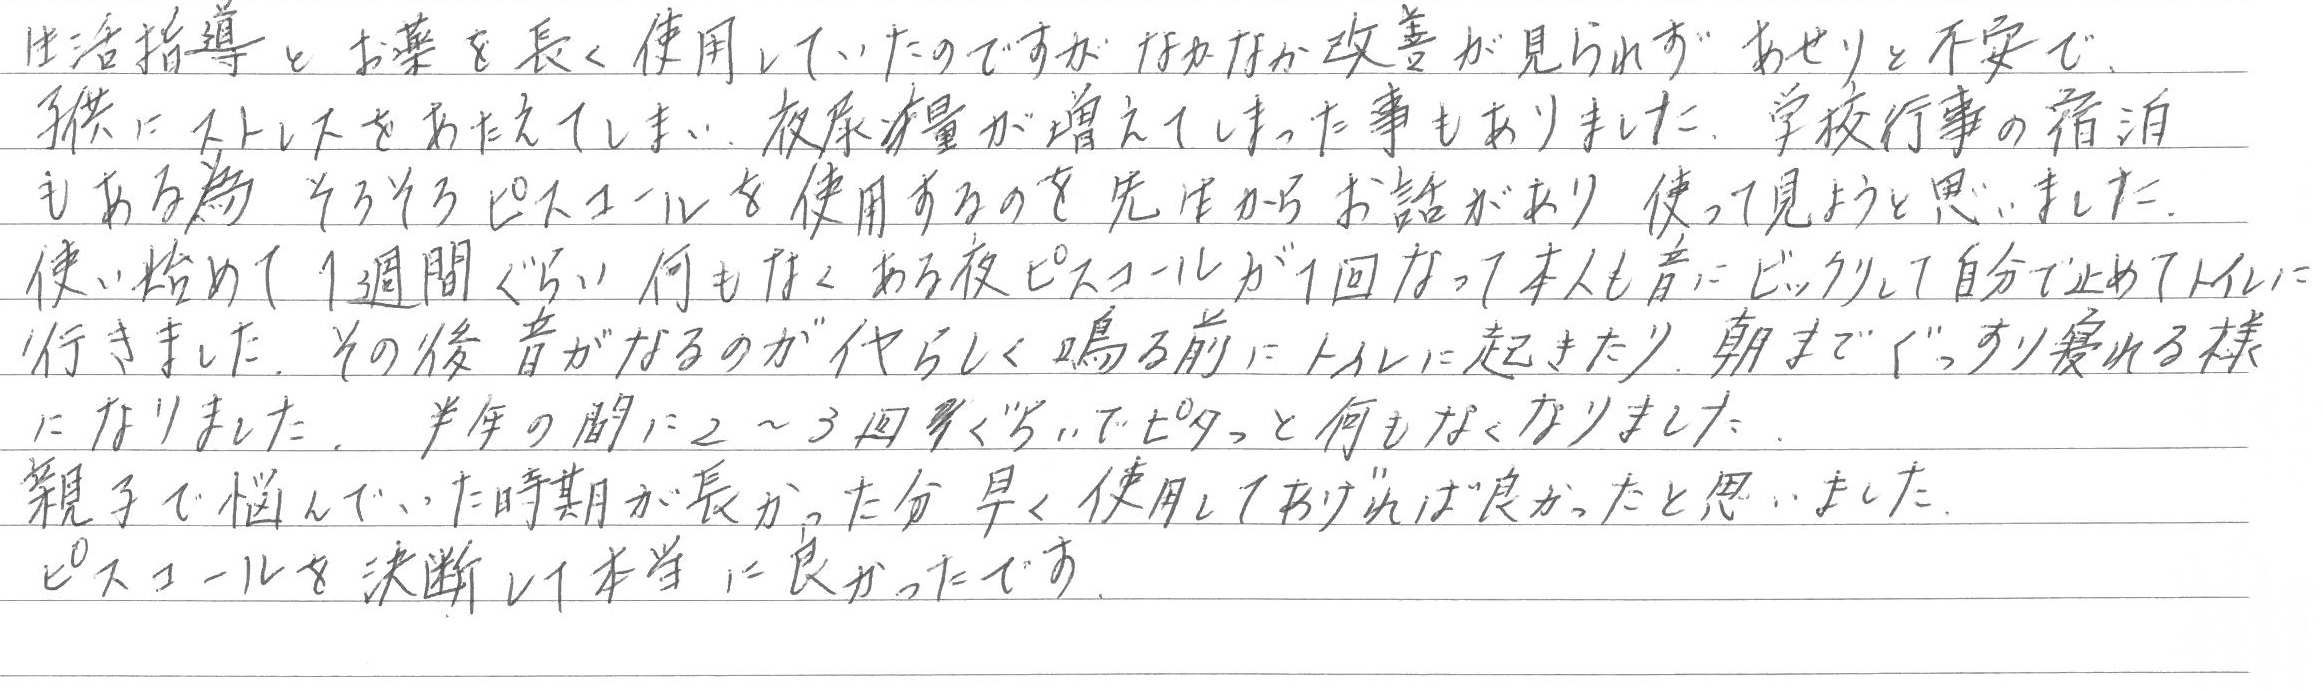 生活指導と お薬を 長く 使用していたのですが なかなか改善が見られず あせりと不安で、
子供にストレスをあたえてしまい、夜尿量が増えてしまった事もありました。学校行事の宿泊
もある為 そろそろピスコールを使用するのを先生からお話があり 使って見ようと思いました。
使い始めて1週間ぐらい何もなくある夜ピスコールが1回なって本人も音にビックリして自分で止めてトイレに
行きました。その後音がなるのがイヤらしく鳴る前にトイレに起きたり、朝までぐっすり寝れる様
になりました。 半年の間に2~3回ぐらいでピタっと何もなくなりました。
親子で悩んでいた時期が長かった分 早く使用してあげれば良かったと思いました。
ピスコールを決断して本当に良かったです。